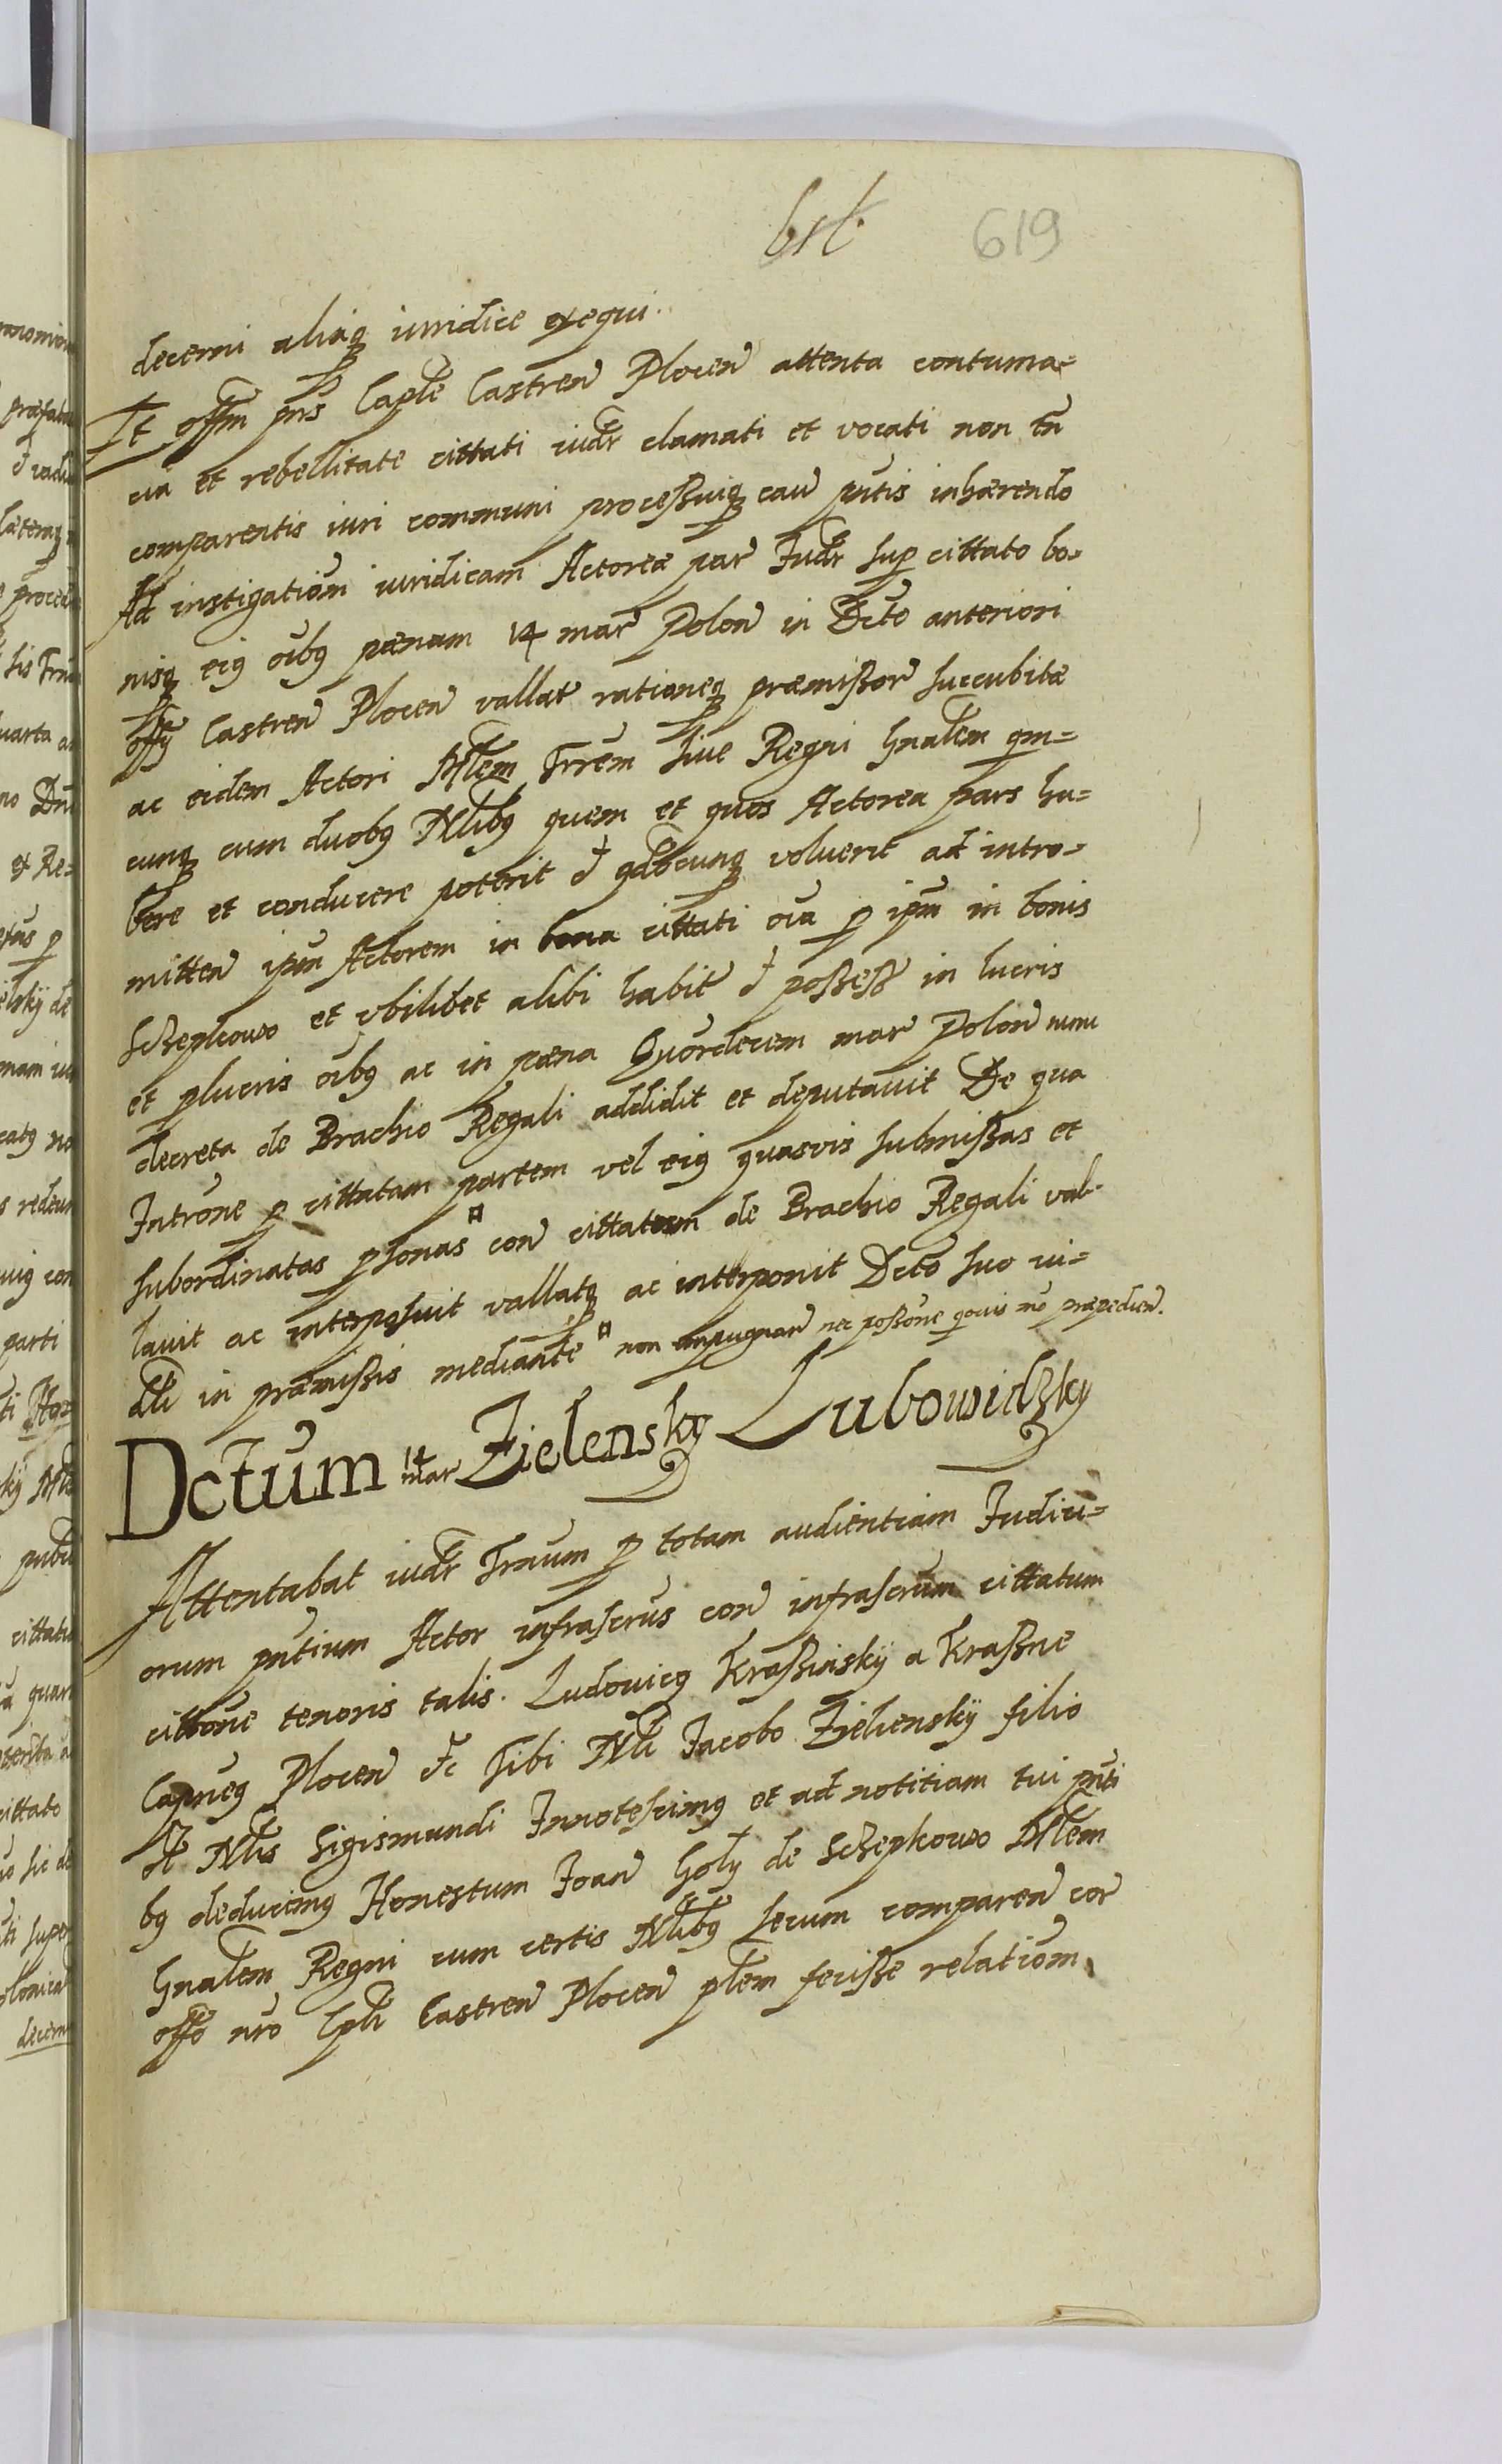 619
decerni aliaq iuridice exequi.
Et offm pns Caple Castren Plocen attenta contuma=
cia et rebellitate cittati iudr clamati et vocati non tn
comparentis iuri communi processuiq caū pntis inhærendo
Ad instigationi iuridicam Actoreæ par Iudr sup cittato bo=
nisq eig oibg pœnam 14 mar Polon in Dcto anteriori
offy Castren Plocen vallat rationeq præmissor succubitæ
ac eidem Actori Mlem Trrem sive Regni Gnalem qm=
cunq cum duobg Nlibg quem et quos Actorea pars ha=
bere et conducere poterit & qdocunq voluerit ad intro=
mitten ipm Actorem in bona cittati oia p ipm in bonis
Sczepkowo et vbilibet alibi habit & possess in lucris
et plucris oibg ac in pœna Quordecem mar Polon nunc
decreta de Brachio Regali addidit et deputavit De qua
Introne p cittatam partem vel eig quasvis submissas et
subordinatas psonas ¤ con cittatum de Brachio Regali val=
lavit ac interposuit vallatq ac interponit Dcto suo iu=
dli in præmissis mediante ¤ non impugnan nec possone qovis mo præpedien.
Dctum 14 mar Zielensky Lubowidzky
Attentabat iudr Trnum p totam audientiam Iudici=
orum pntium Actor infrascrus con infrascrum cittatum
cittone tenoris talis. Ludovicg Krassinskÿ a Krassne
Capneg Plocen &c Tibi Nli Jacobo Zieliensky filio
olt Nlis Sigismundi Innotescimg et ad notitiam tui pnti
bg deducimg Honestum Joan Goly de Sczepkowo Mlem
Gnalem Regni cum certis Nlibg secum comparen cor
offo nro Cpli Castren Plocen plem fecisse relationem